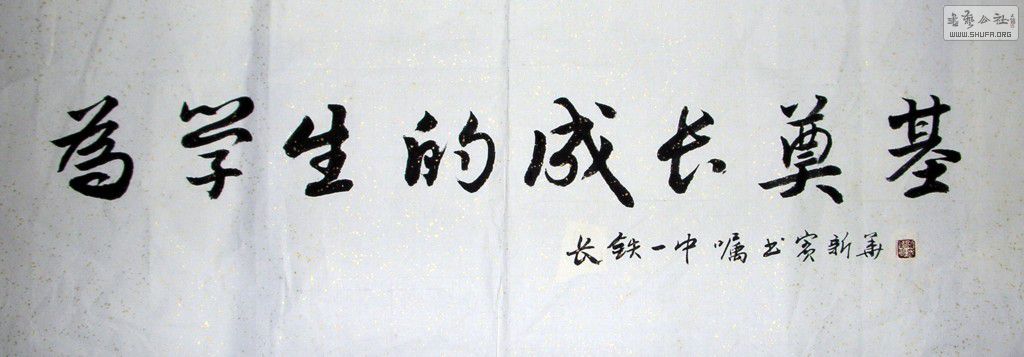 書藝公社
WWW.SHUFA.ORG
為学生的成长奠基
长铁一中嘱书宾新华